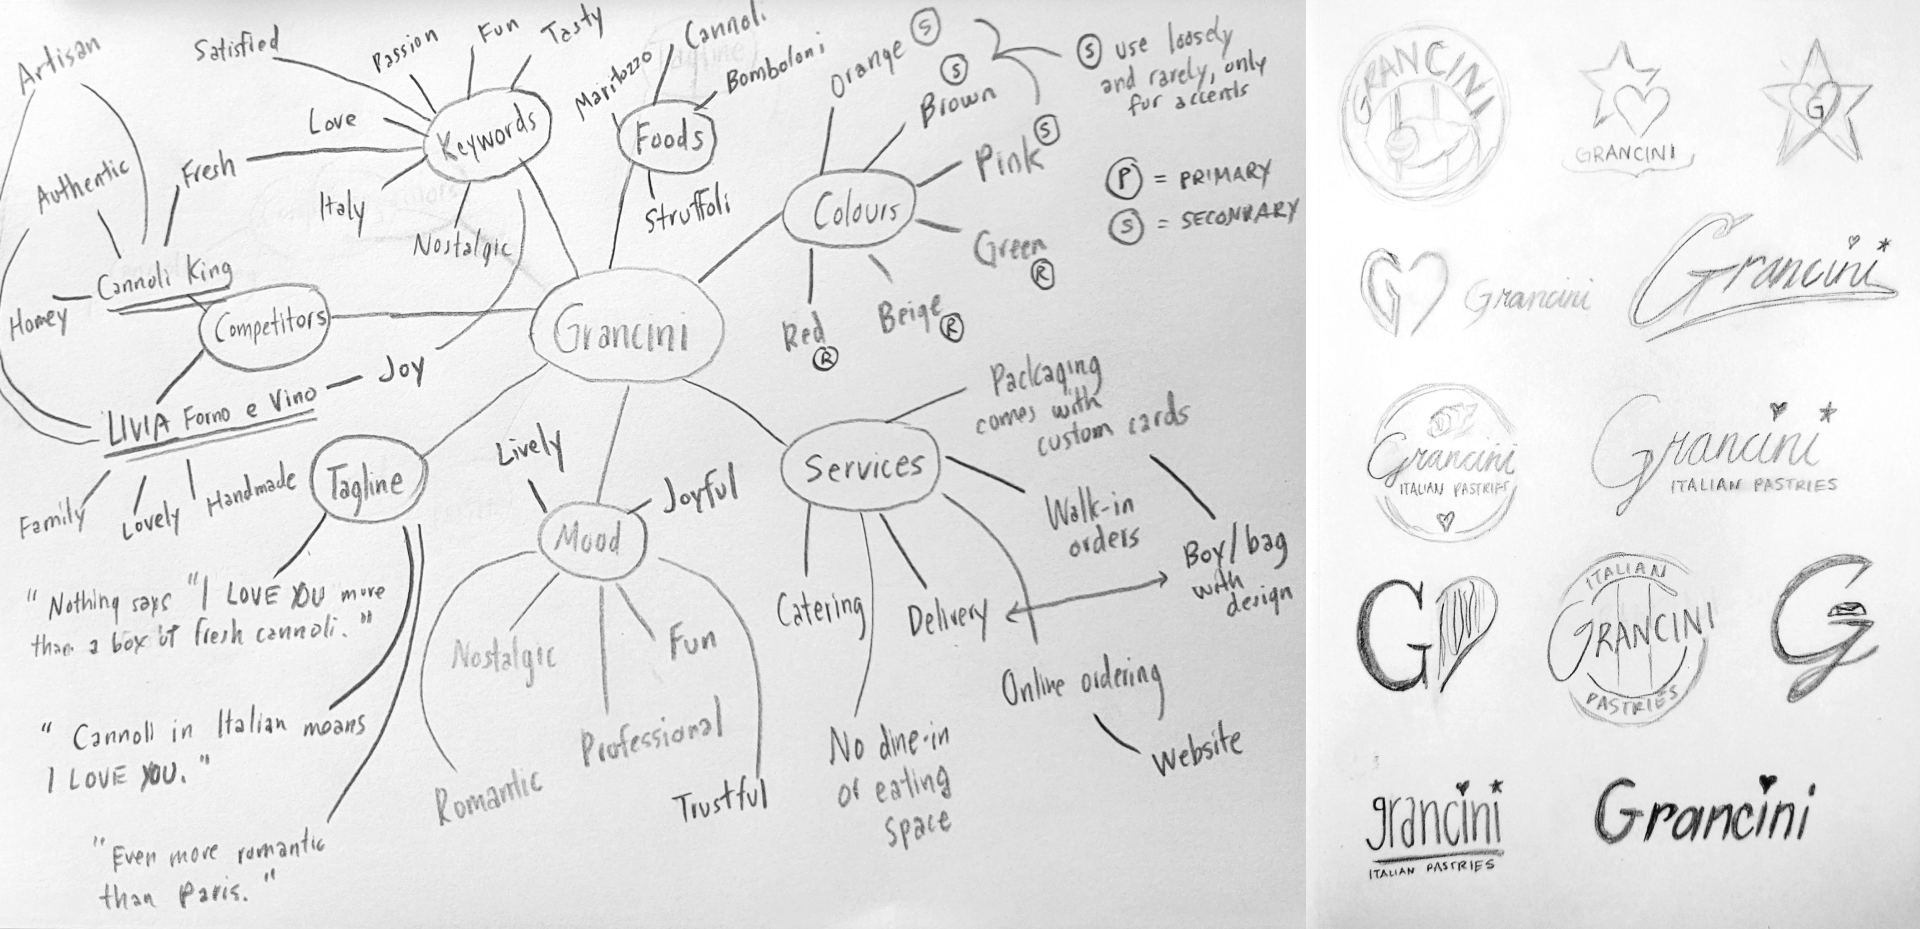 Artisan
Satisfied
Passion
Fun
Tasty
Love
Fresh
Keywords
Italy
Nostalgic
Authentic
Cannoli King
Homey
Competitors
Joy
LIVIA Forno e Vino
Family
Lovely
Handmade
Maritozzo
Cannoli
Bomboloni
Foods
Struffoli
Orange S
Brown S
Pink S
Colours
Green R
Beige R
Red R
S use loosely
and rarely, only
for accents
P = PRIMARY
S = SECONRARY
Grancini
Tagline
"Nothing says "I LOVE YOU more
than a box of fresh cannoli."
"Cannoli in Italian means
I LOVE YOU."
"Even more romantic
than Paris."
Lively
Joyful
Mood
Nostalgic
Fun
Professional
Romantic
Trustful
Services
Packaging
comes with
custom cards
Walk-in
orders
Box/bag
with
design
Catering
Delivery
Online ordering
Website
No dine-in
or eating
space
GRANCINI
GRANCINI
G
G
Grancini
Grancini
Grancini
ITALIAN PASTRIES
Grancini
ITALIAN PASTRIES
G
ITALIAN
GRANCINI
PASTRIES
G
grancini
ITALIAN PASTRIES
Grancini